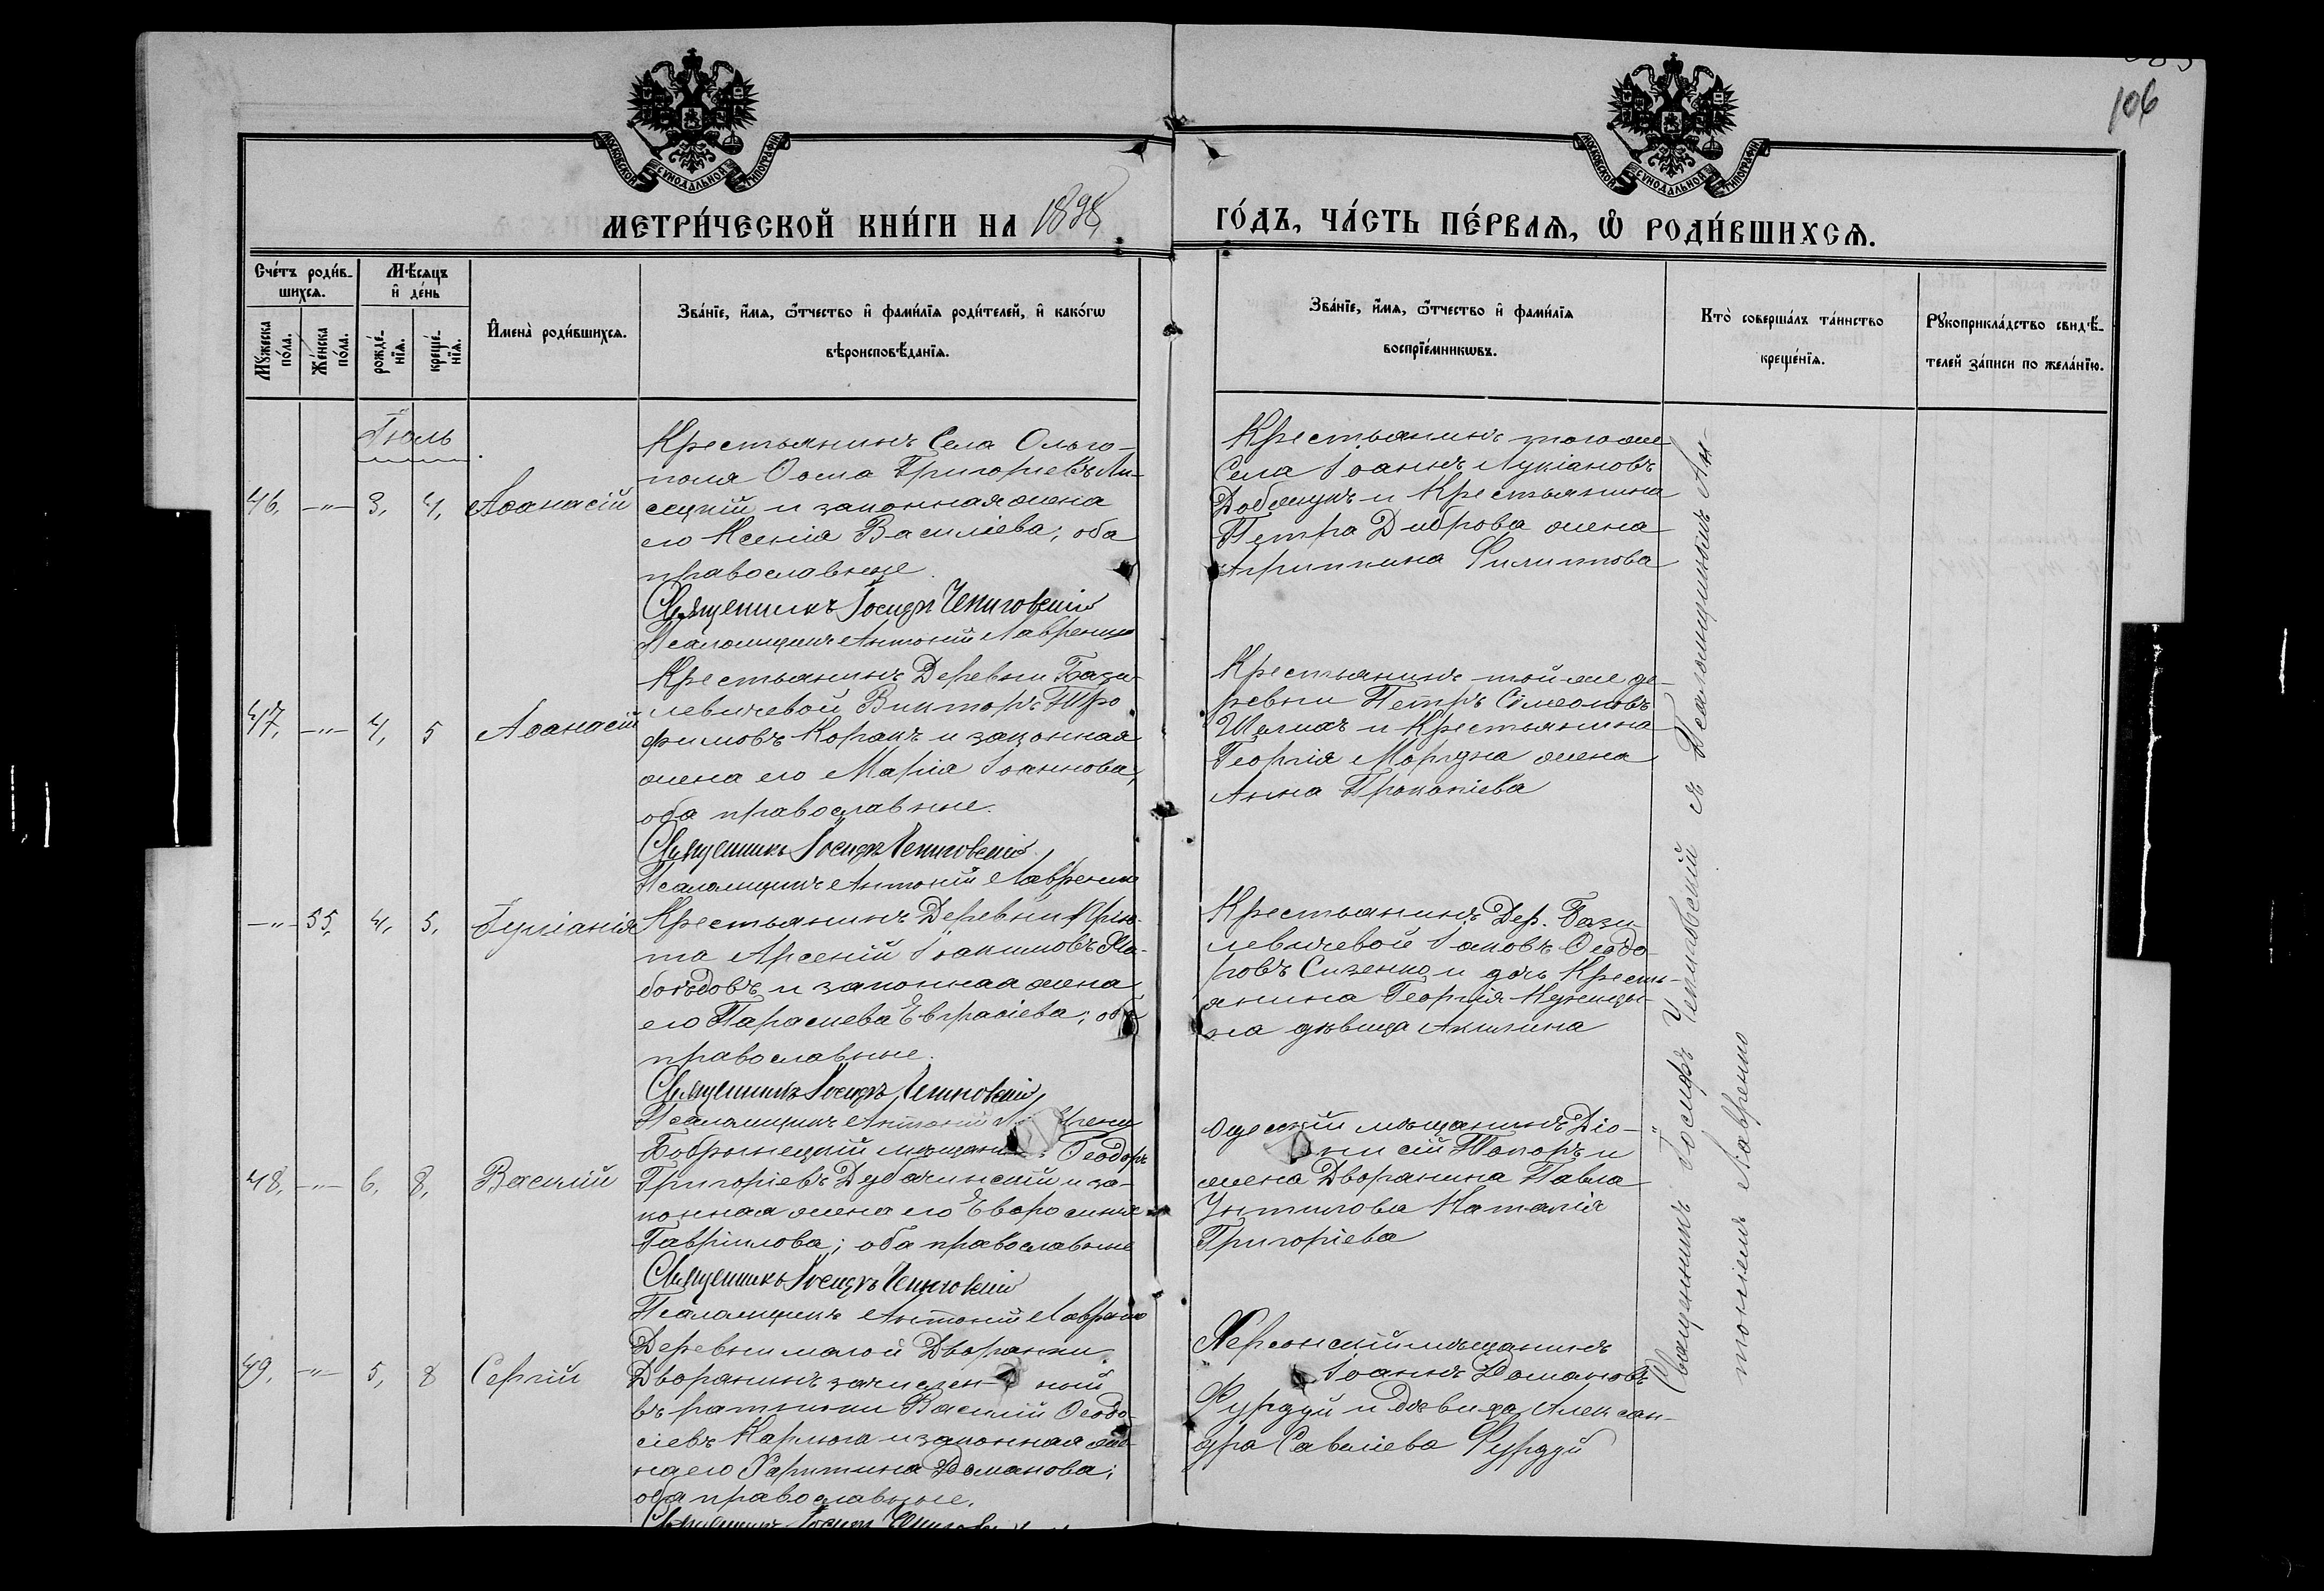 106
МОСКОВСКОЙ СУНОДАЛЬНОЙ ТИПОГРАФІИ
МОСКОВСКОЙ СУНОДАЛЬНОЙ ТИПОГРАФІИ
МЕТРИ́ЧЕСКОЙ КНИ́ГИ НА 1898
ГО́ДЪ, ЧА́СТЬ ПЕ́РВАѦ, Ѡ҆ РОДИ́ВШИХСѦ.
Сче́тъ роди́в-
шихсѧ.
Мꙋ́жеска по́ла.
Же́нска по́ла.
Мѣ́сѧцъ
и҆ де́нь
рожде́-
нїѧ.
креще́-
нїѧ.
И҆мена̀ роди́вшихсѧ.
Зва́нїе, и҆́мѧ, ѻ҆́тчество и҆ фами́лїѧ роди́телей, и҆ како́гѡ
вѣроисповѣ́данїѧ.
Зва́нїе, и҆́мѧ, ѻ҆́тчество и҆ фами́лїѧ
воспрїе́мникѡвъ.
Кто̀ соверша́лъ та́инство
креще́нїѧ.
Рꙋкоприкла́дство свидѣ́-
телей за́писи по жела́нїю.
Іюль
46. —"— 3. 4. Аѳанасій
Крестьянинъ Села Ольго-
поля Ѳома Григорьевъ Ли-
сецкій и законная жена
его Ксенія Василіева; оба
православные
Священникъ Іосифъ Чепиговскій
Псаломщикъ Антоній Лавренко
Крестьянинъ того же
Села Іоаннъ Лукіановъ
Добжукъ и Крестьянина
Петра Диброва жена
Агриппина Филиппова
47. —"— 4. 5 Аѳанасій
Крестьянинъ Деревни Бази-
левичевой Викторъ Тро-
фимовъ Коракъ и законная
жена его Марія Іоаннова,
оба православные.
Священникъ Іосифъ Чепиговскій
Псаломщикъ Антоній Лавренко
Крестьянинъ той же де-
ревни Петръ Сімеоновъ
и Крестьянина
Георгія жена
Анна Прокопіева
—"— 55. 4. 5. Іуліанія
Крестьянинъ Деревни Прію-
та Арсеній Іоакимовъ Сла-
боѣдовъ и законная жена
его Параскева Евграфіева; оба
православные.
Священникъ Іосифъ Чепиговскій
Псаломщикъ Антоній
Крестьянинъ Дер. Бази-
левичевой Іаковъ Ѳеодо-
ровъ Сизенко и дочь Кресть-
янина Георгія
дѣвица Акилина
48. —"— 6. 8. Василій
Бобринецкій мѣщанинъ Ѳеодоръ
Григоріевъ Дубачинскій и за-
конная жена его Евфросинія
Гавріилова; оба православные
Священникъ Іосифъ Чепиговскій
Псаломщикъ Антоній Лавренко
Одесскій мѣщанинъ Діо-
нисій Токоръ и
жена Дворянина Павла
Унтилова Наталія
Григоріева
49. —"— 5. 8 Сергій
Деревни малой Дворянки
Дворянинъ зачислен ный
въ ратники Василій Ѳеодо-
сіевъ Карлюга и законная же-
на его Харитина Доманова;
оба православные.
Священникъ Іосифъ Чепиговскій
Херсонскій мѣщанинъ
Іоаннъ Домановъ
Фурдуй и дѣвица Алексан-
дра Савеліева Фурдуй
Священникъ Іосифъ Чепиговскій съ Псаломщикомъ Ан-
тоніемъ Лавренко